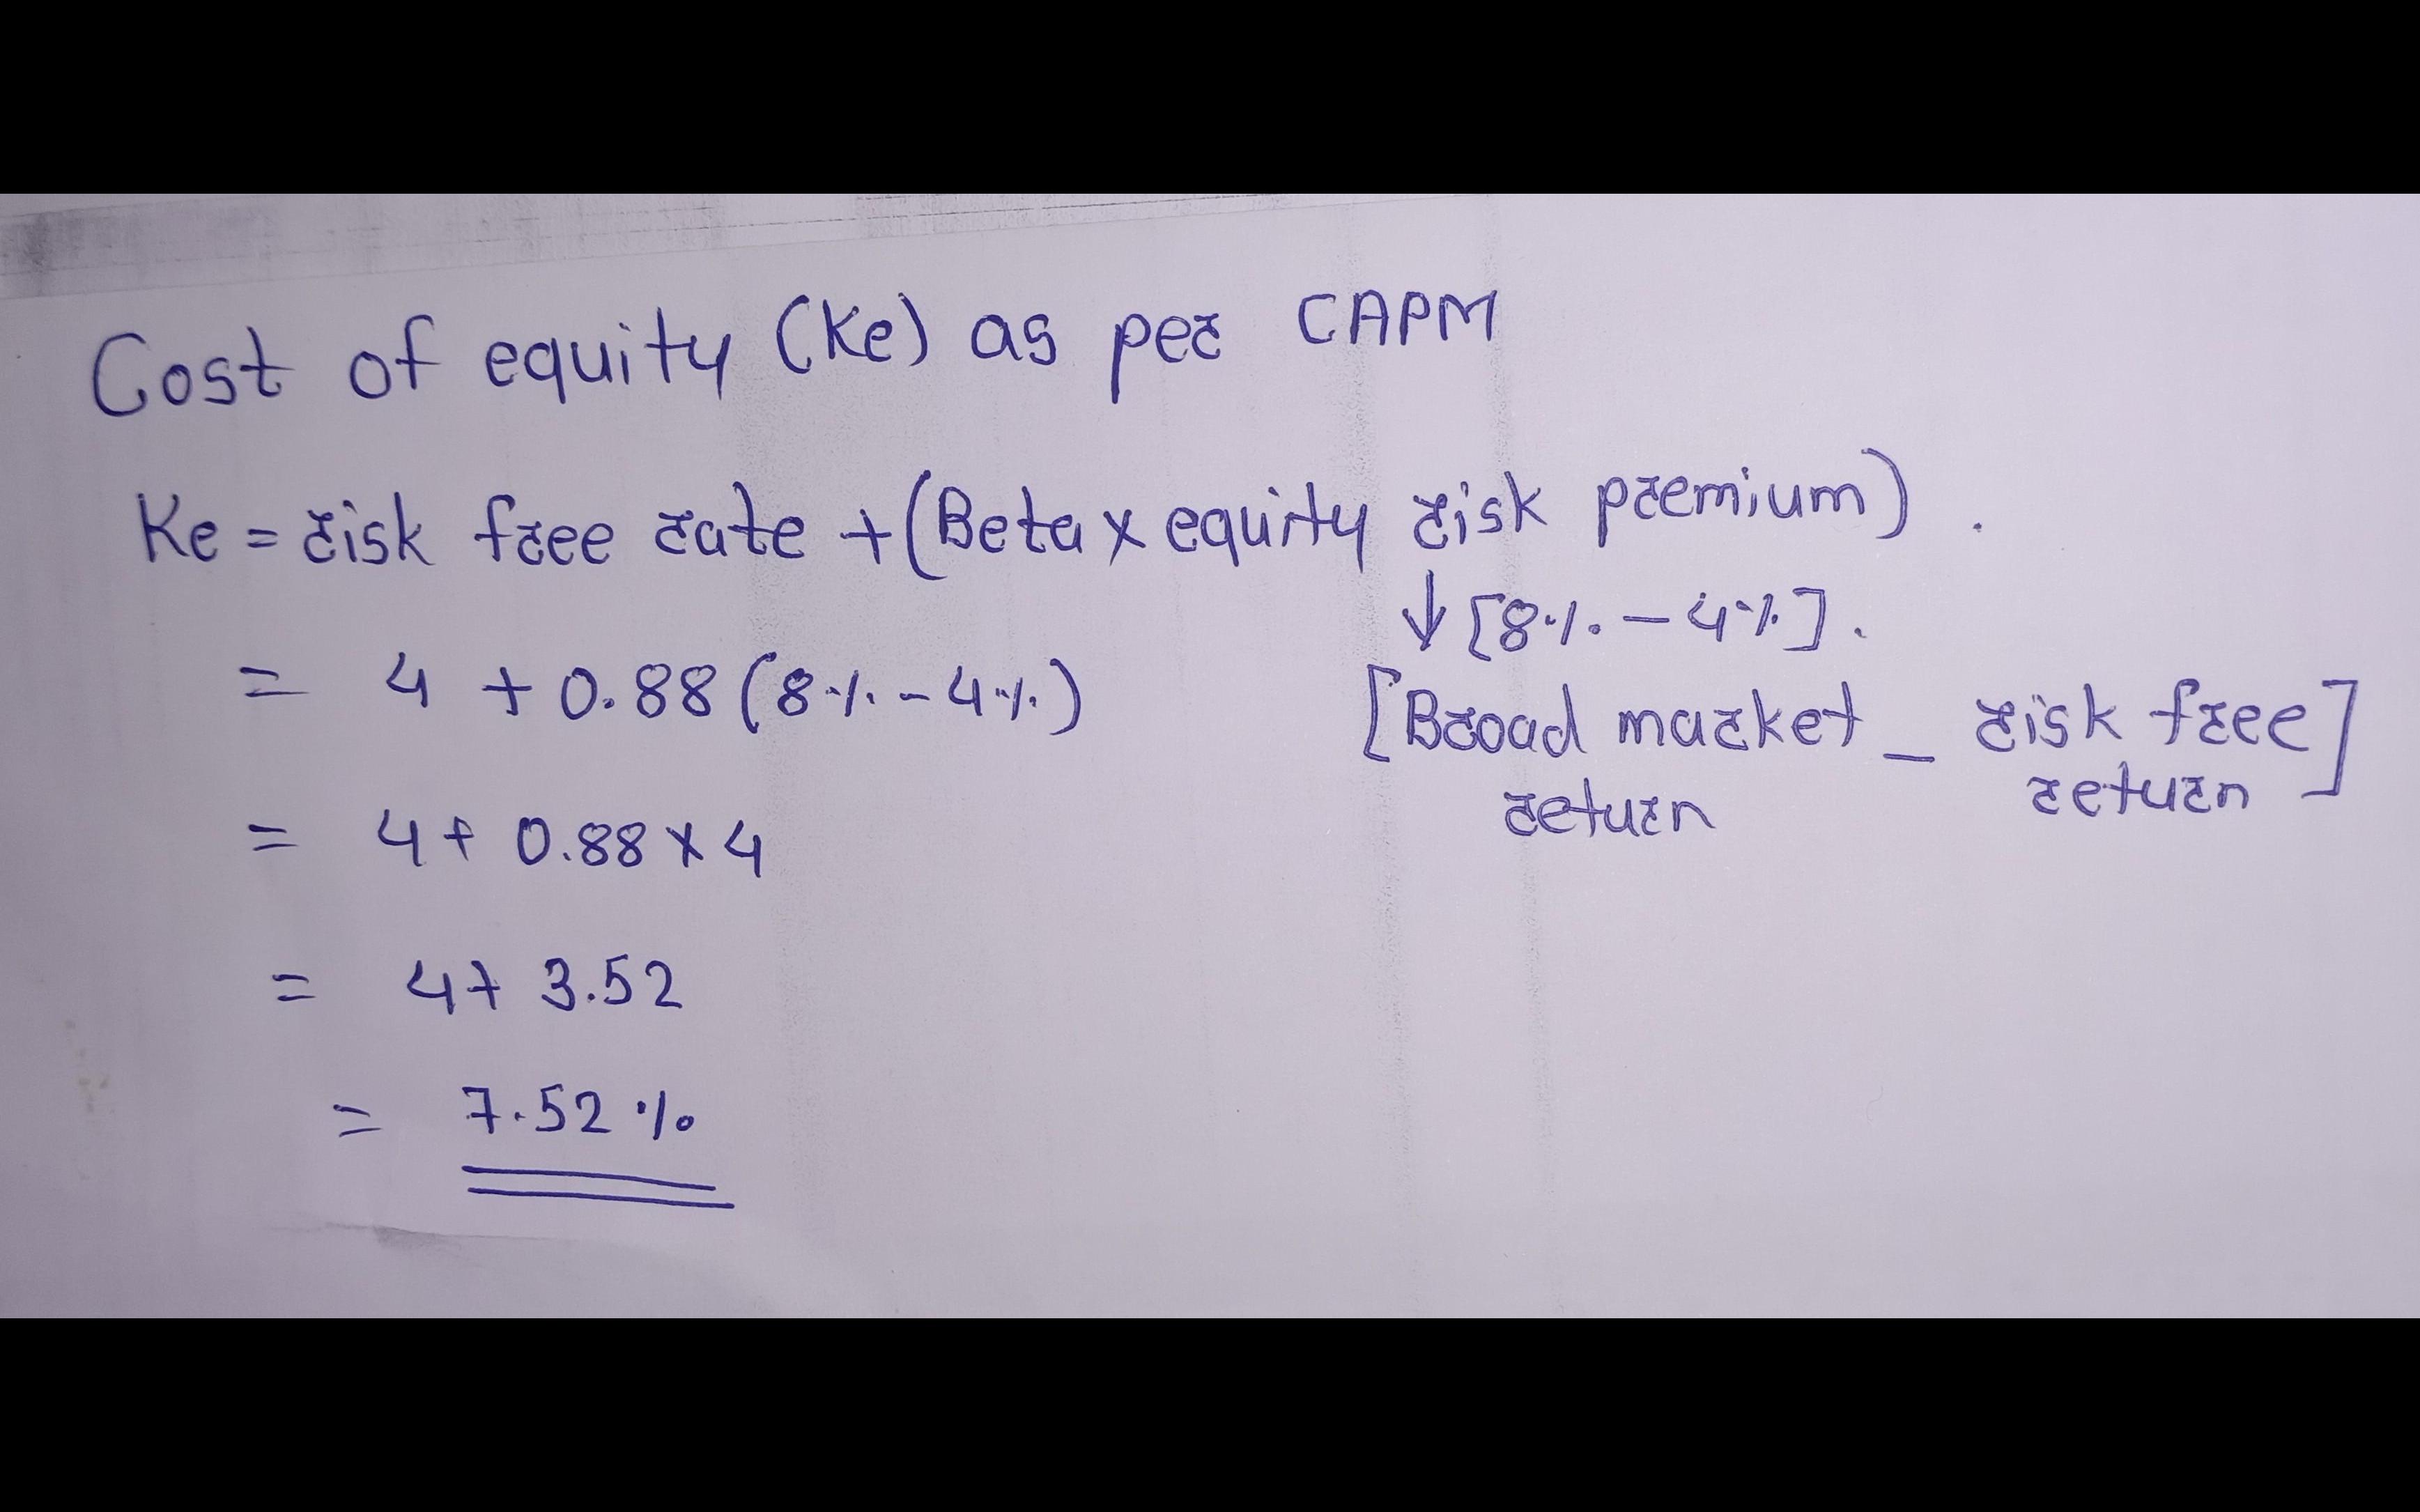 Cost of equity (Ke) as per CAPM
Ke = risk free rate + (Beta x equity risk premium) .
↓ [8% - 4%] .
= 4 + 0.88 (8% - 4%)
[Broad market - risk free]
return return
= 4 + 0.88 x 4
= 4 + 3.52
= 7.52 %